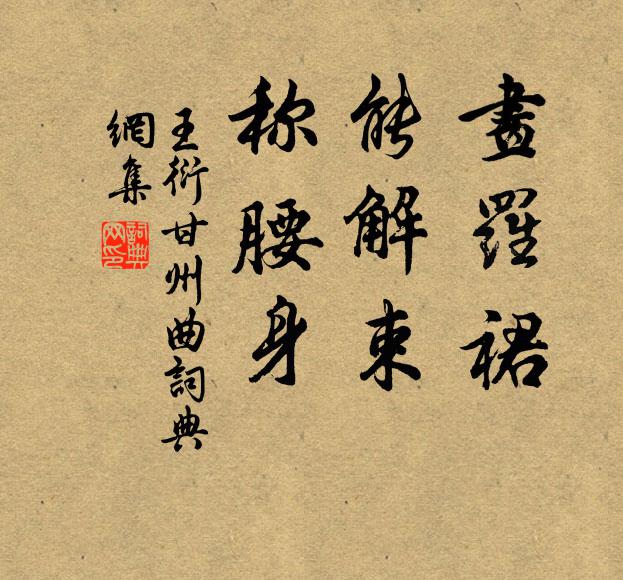 畫羅裙
能解束
称腰身
王衍甘州曲詞典
網集
詞典
网印